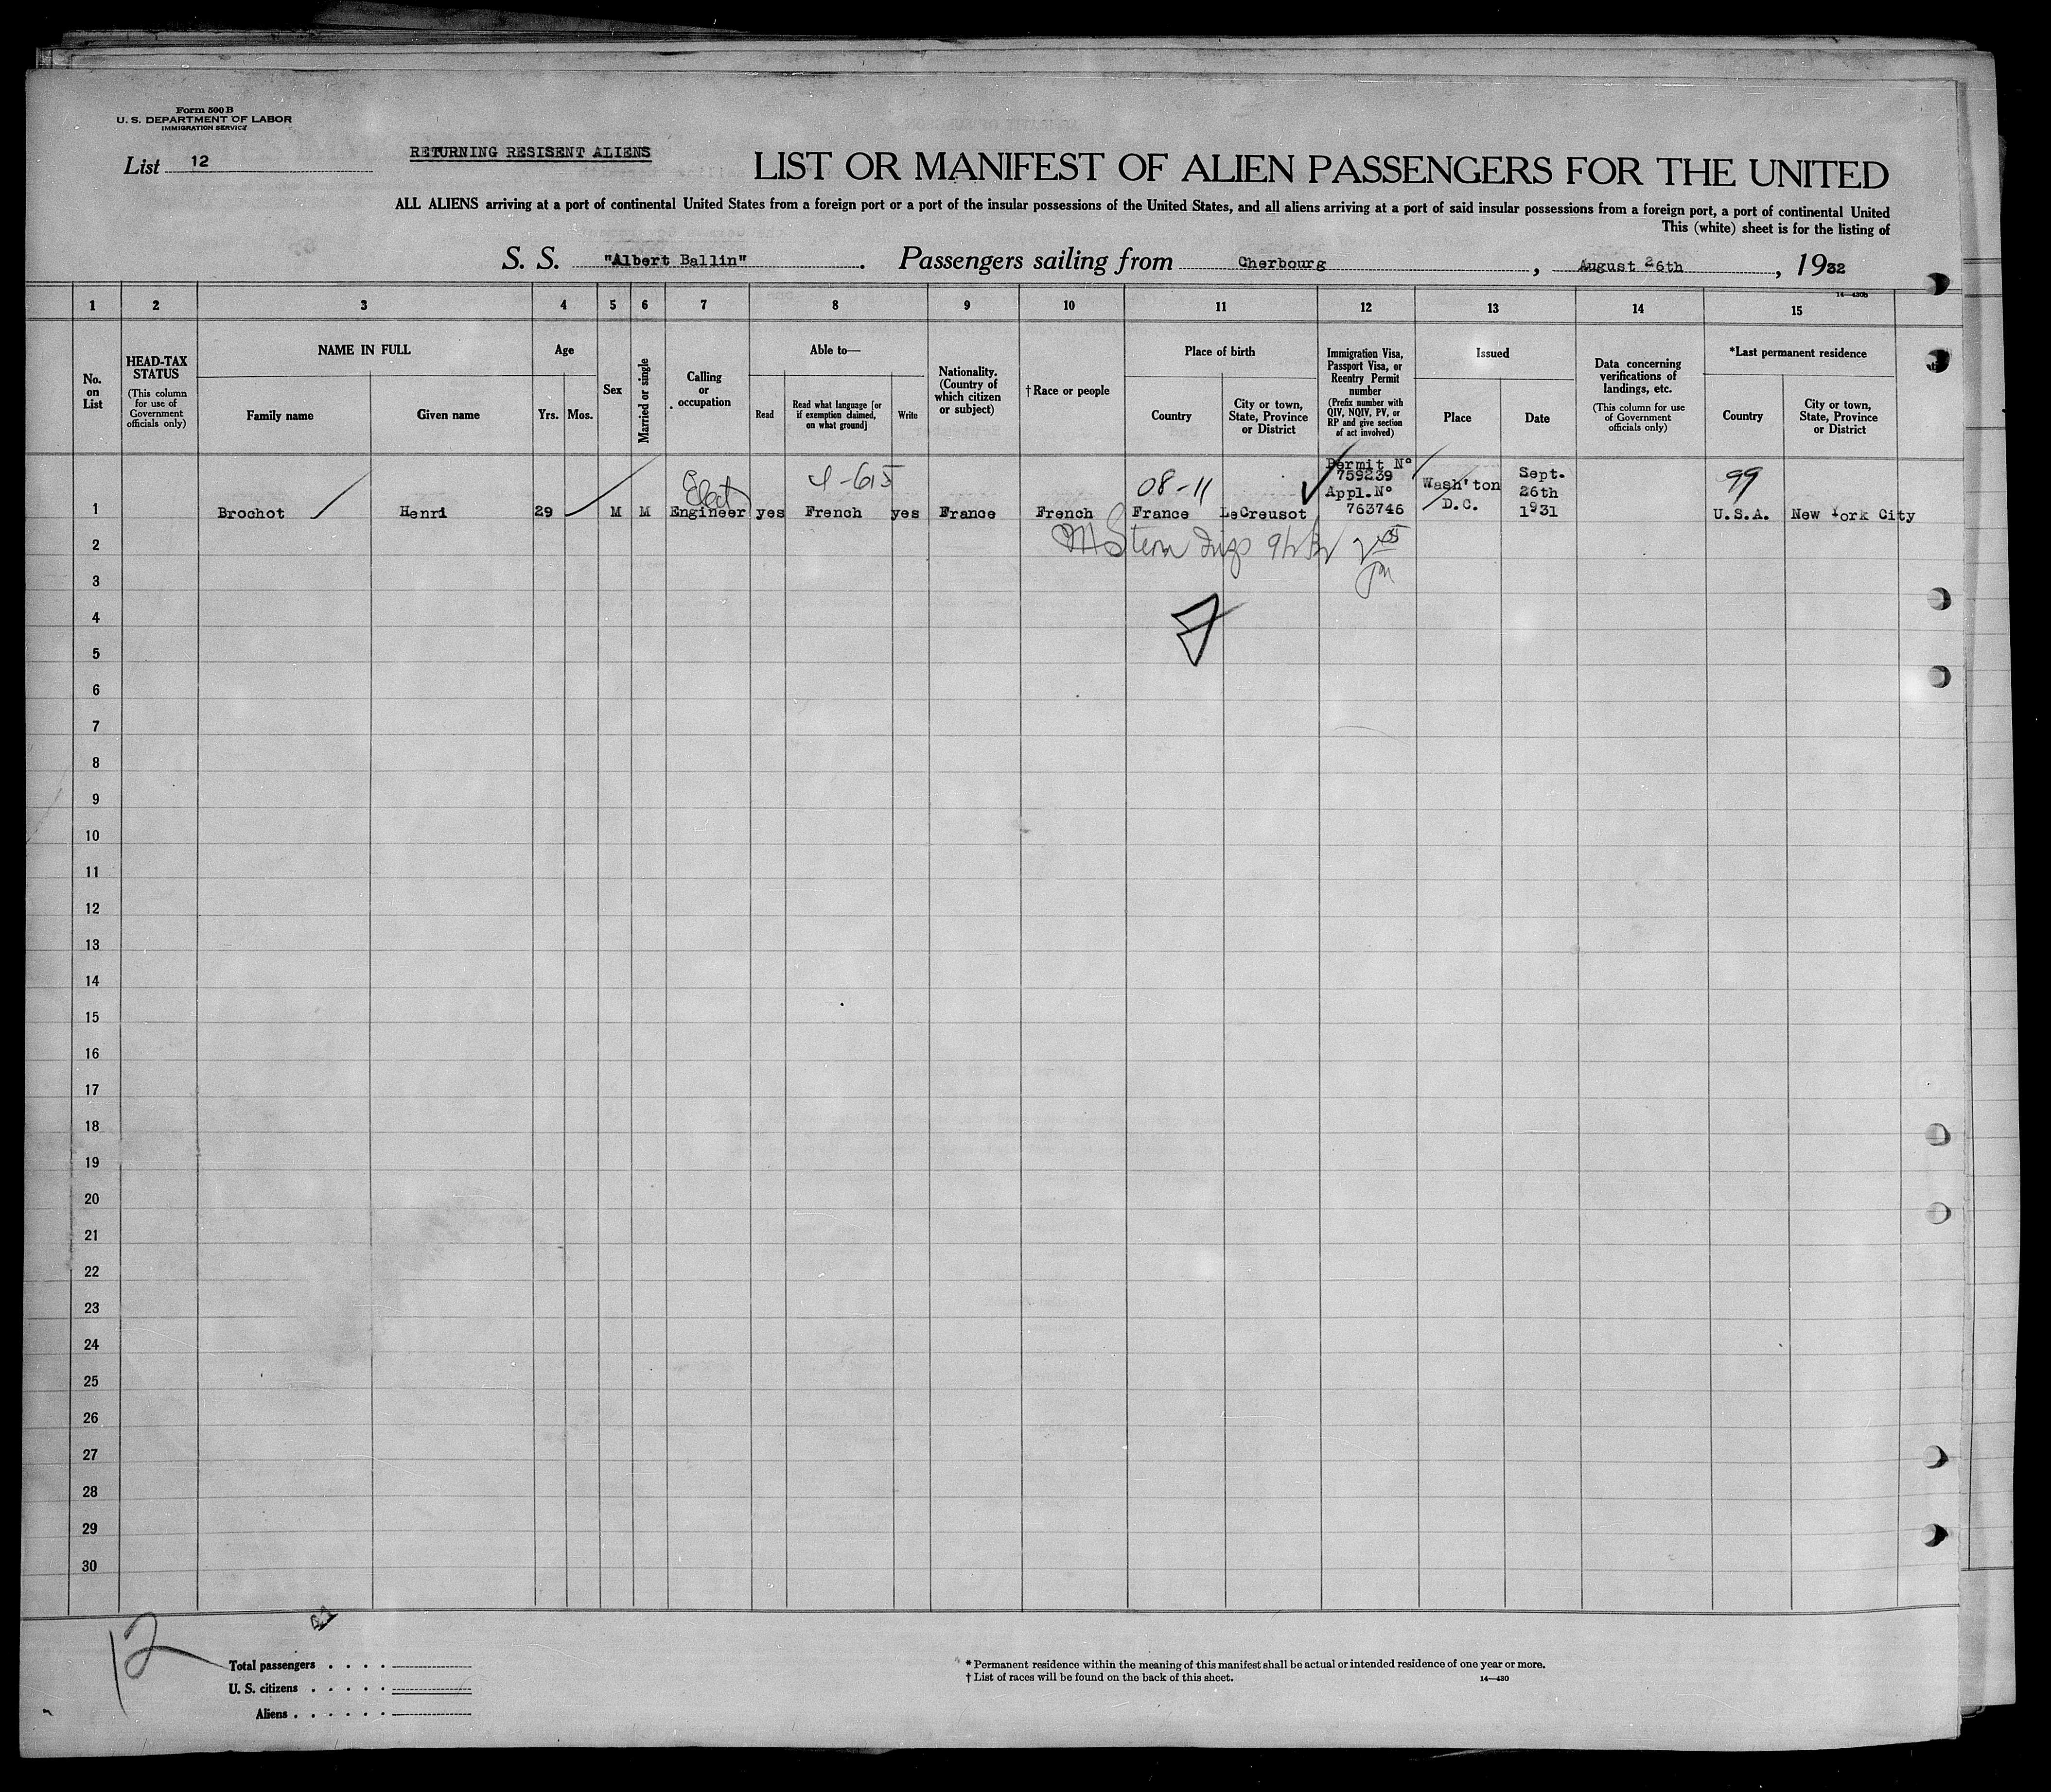 Form 500 B
U. S. DEPARTMENT OF LABOR
IMMIGRATION SERVICE
List 12
RETURNING RESISENT ALIENS
LIST OR MANIFEST OF ALIEN PASSENGERS FOR THE UNITED
ALL ALIENS arriving at a port of continental United States from a foreign port or a port of the insular possessions of the United States, and all aliens arriving at a port of said insular possessions from a foreign port, a port of continental United
This (white) sheet is for the listing of
S. S. "Albert Ballin". Passengers sailing from Cherbourg, August 26th, 1932
14—430B
1 2 3 4 5 6 7 8 9 10 11 12 13 14 15
No. on List
HEAD-TAX STATUS
(This column for use of Government officials only)
NAME IN FULL
Family name
Given name
Age
Yrs. Mos.
Sex
Married or single
Calling or occupation
Able to—
Read
Read what language [or if exemption claimed, on what ground]
Write
Nationality. (Country of which citizen or subject)
† Race or people
Place of birth
Country
City or town, State, Province or District
Immigration Visa, Passport Visa, or Reentry Permit number
(Prefix number with QIV, NQIV, PV, or RP and give section of act involved)
Issued
Place
Date
Data concerning verifications of landings, etc.
(This column for use of Government officials only)
*Last permanent residence
Country
City or town, State, Province or District
1 Brochot Henri 29 M M Elect Engineer yes 4-615 French yes France French 08-11 France LeCreusot Permit Nº 759239 Appl.Nº 763746 Wash'ton D.C. Sept. 26th 1931 99 U.S.A. New York City
2
3
4
5
6
7
8
9
10
11
12
13
14
15
16
17
18
19
20
21
22
23
24
25
26
27
28
29
30
12
Total passengers . . . .
U. S. citizens . . . . .
Aliens . . . . . .
* Permanent residence within the meaning of this manifest shall be actual or intended residence of one year or more.
† List of races will be found on the back of this sheet.
14—430